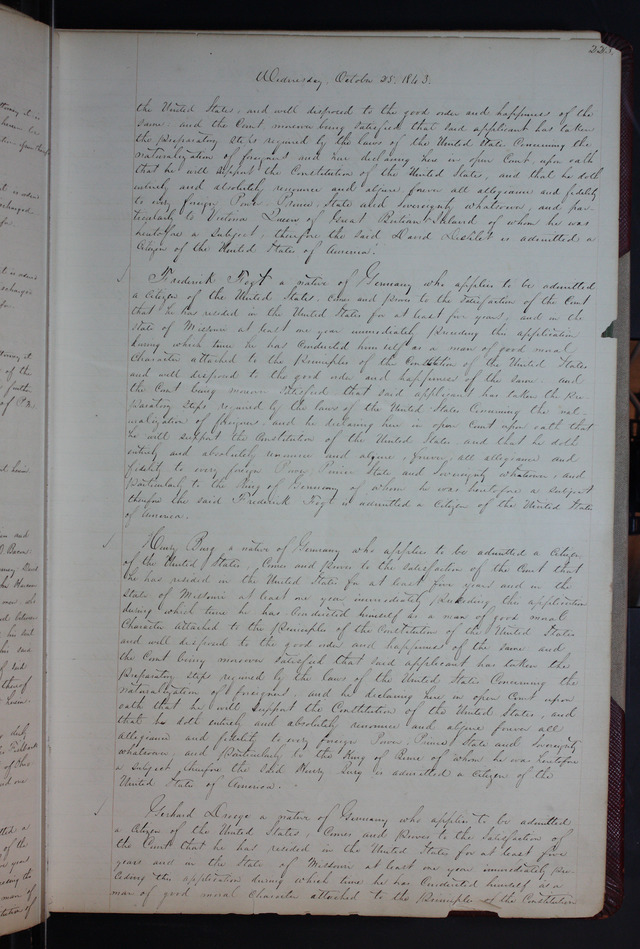 223.
Wednesday, October 25. 1843.
the United States, and well disposed to the good order and happiness of the
same, and the Court moreover being satisfied that said applicant has taken
the preparatory steps required by the laws of the United States Concerning the
naturalization of foreigners and he declaring here in open Court, upon oath
that he will support the Constitution of the United States, and that he doth
entirely and absolutely renounce and abjure forever all allegiance and fidelity
to every foreign Power, Prince, State and Sovereignty whatsoever, and par-
ticularly to Victoria Queen of Great Britian & Ireland of whom he was
heretofore a Subject, therefore the said David is admitted a
Citizen of the United States of America.
Frederick Fogt a native of Germany who applies to be admitted
a Citizen of the United States, comes and proves to the satisfaction of the Court
that he has resided in the United States for at least five years, and in the
State of Missouri at least one year immediately preceding this application
during which time he has conducted himself as a man of good moral
Character attached to the principles of the Constitution of the United States
and well disposed to the good order and happiness of the same, and
the Court being moreover satisfied that said applicant has taken the pre
paratory steps required by the laws of the United States Concerning the nat-
uralization of foreigners, and he declaring here in open Court upon oath that
he will support the Constitution of the United States, and that he doth
entirely and absolutely renounce and abjure, forever, all allegiance and
fidelity to every foreign Power, Prince State and Sovereignty whatsoever, and
particularly to the King of Germany of whom he was heretofore a subject
therefore the said Frederick Fogt is admitted a Citizen of the United States
of America.
Henry Burg a native of Germany who applies to be admitted a Citizen
of the United States, Comes and proves to the satisfaction of the Court that
he has resided in the United States for at least five years and in the
State of Missouri at least one year immediately preceding this application
during which time he has Conducted himself as a man of good moral
Character attached to the principles of the Constitution of the United States
and well disposed to the good order and happiness of the same and
the Court being moreover satisfied that said applicant has taken the
preparatory steps required by the laws of the United States Concerning the
naturalization of foreigners, and he declaring here in open Court upon
oath that he will support the Constitution of the United States, and
that he doth entirely and absolutely renounce and abjure forever all
allegiance and fidelity to every foreign Power, Prince, State and Sovereignty
whatsoever, and particularly to the King of of whom he was heretofore
a subject therefore the said Henry Burg is admitted a Citizen of the
United States of America.
Gerhard Droege a native of Germany who applies to be admitted
a Citizen of the United States, Comes and proves to the satisfaction of
the Court that he has resided in the United States for at least five
years and in the State of Missouri at least one year immediately pre
ceding this application during which time he has Conducted himself as a
man of good moral Character attached to the principles of the Constitution